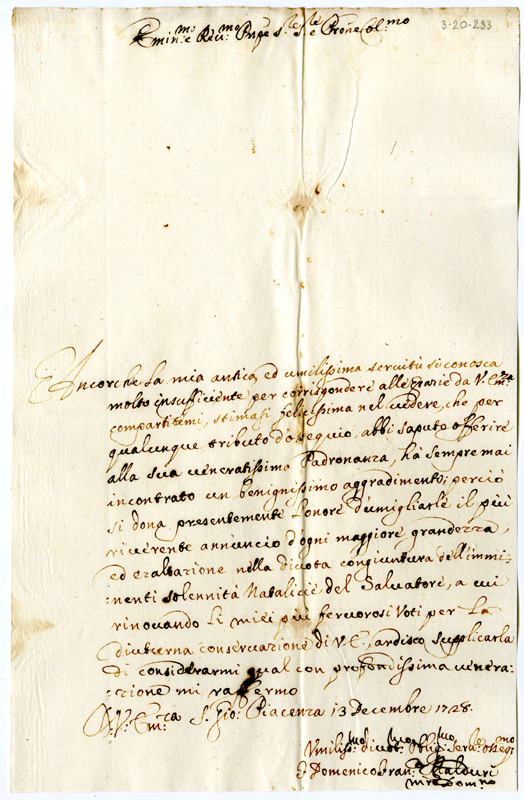 3-20-233
Emin:mo e Rev:mo Pnpe S:re e Prone Col:mo
Ancorche la mia antica, ed umilissima seruitù si conosca
molto insufficiente per corrispondere alle grazie da V. Em:za
compartitemi, stimasi felicissima nel uedere, che per
qualunque tributo d'ossequio, abbi saputo offerire
alla sua ueneratissima Padronanza, hà sempre mai
incontrato un benignissimo aggradimento; perciò
si dona presentemente l'onore d'umigliarle il più
riuerente annuncio d'ogni maggiore grandezza,
ed exaltazione nella diuota congiuntura dell'immi-
nenti solennità Natalicie del Saluatore, a cui
rinouando li miei più feruorosi Voti per la
diuturna conseruazione di V. E., ardisco supplicarla
di considerarmi qual con profondissima uenera-
zione mi raffermo
D. V. Em:za S. Gio: Piacenza 13 Decembre 1728.
Vmiliss:mo diuot:mo Obblig:mo Ser:re osseq:mo
F Domenico Fran:co